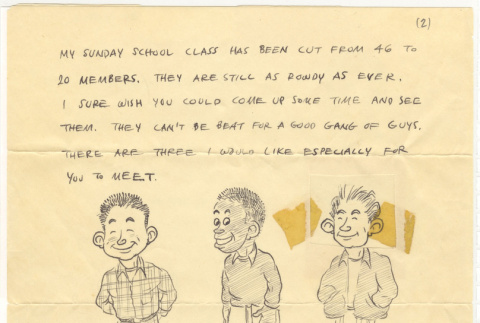 (2)
MY SUNDAY SCHOOL CLASS HAS BEEN CUT FROM 46 TO
20 MEMBERS. THEY ARE STILL AS ROWDY AS EVER.
I SURE WISH YOU COULD COME UP SOME TIME AND SEE
THEM. THEY CAN'T BE BEAT FOR A GOOD GANG OF GUYS.
THERE ARE THREE I WOULD LIKE ESPECIALLY FOR
YOU TO MEET.